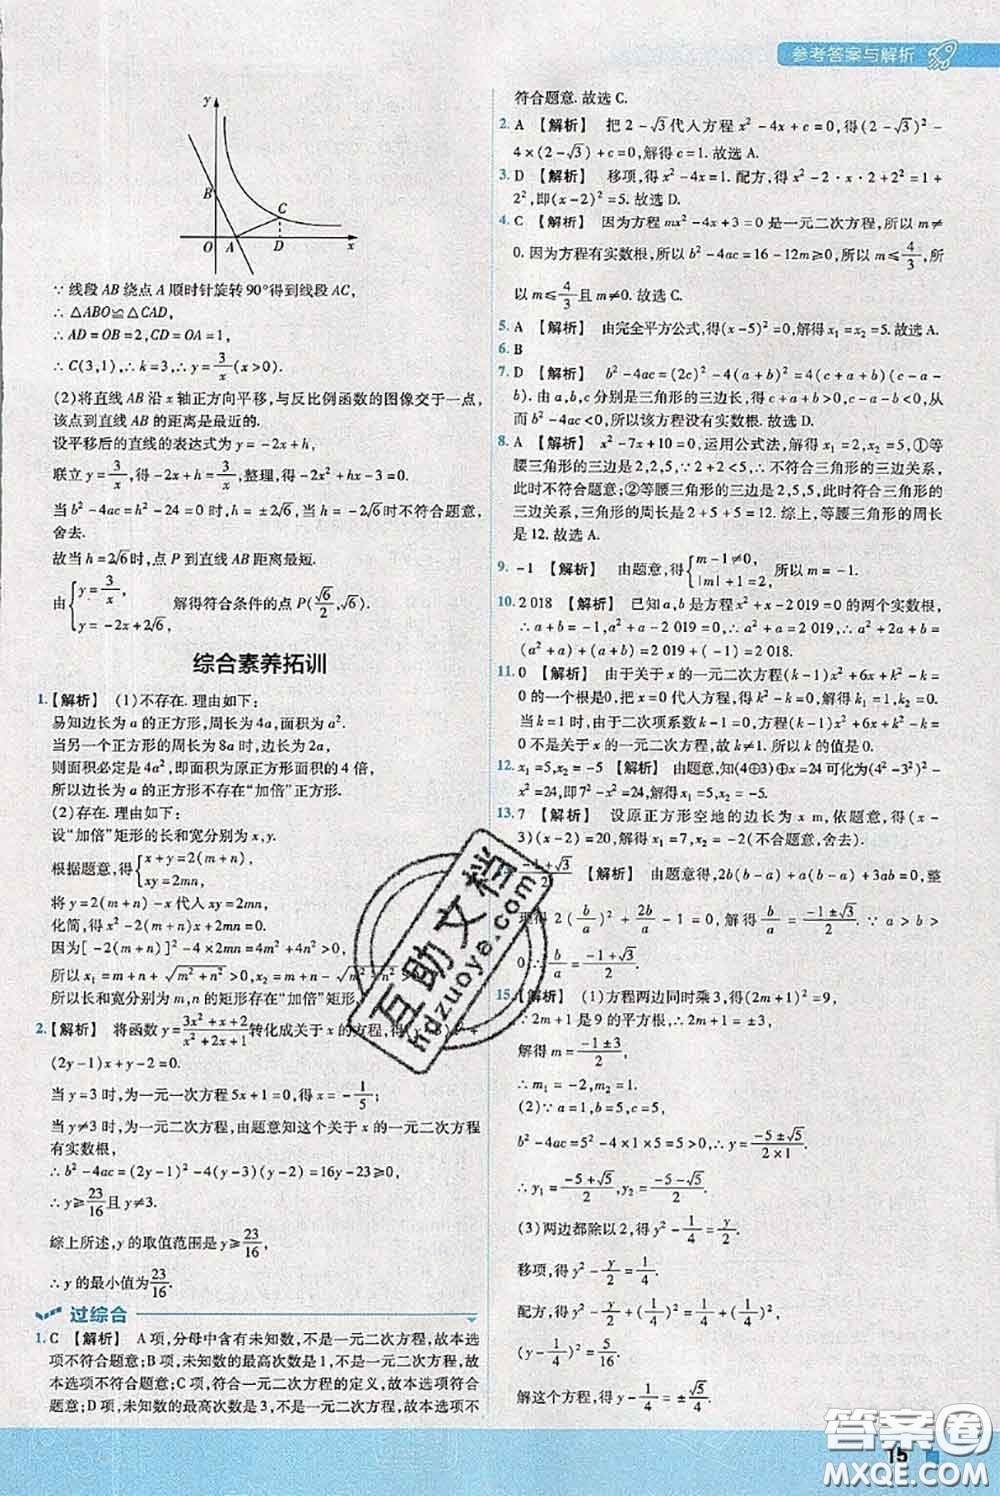 参考答案与解析
y
B
C
O
A
D
x
∵线段AB绕点A顺时针旋转90°得到线段AC,
∴△ABO≌△CAD,
∴AD=OB=2,CD=OA=1,
∴C(3,1),∴k=3,∴y=3/x(x>0).
(2)将直线AB沿x轴正方向平移,与反比例函数的图像交于一点,
该点到直线AB的距离是最近的.
设平移后的直线的表达式为y=-2x+h,
联立y=3/x,得-2x+h=3/x,整理,得-2x²+hx-3=0.
当b²-4ac=h²-24=0时,h=±2√6,当h=-2√6时不符合题意,
舍去.
故当h=2√6时,点P到直线AB距离最短.
由{y=3/x, y=-2x+2√6, 解得符合条件的点P(√6/2,√6).
综合素养拓训
1.【解析】 (1)不存在.理由如下:
易知边长为a的正方形,周长为4a,面积为a².
当另一个正方形的周长为8a时,边长为2a,
则面积必定是4a²,即面积为原正方形面积的4倍,
所以边长为a的正方形不存在“加倍”正方形.
(2)存在.理由如下:
设“加倍”矩形的长和宽分别为x,y.
根据题意,得{x+y=2(m+n), xy=2mn,
将y=2(m+n)-x代入xy=2mn,
化简,得x²-2(m+n)x+2mn=0.
因为[-2(m+n)]²-4×2mn=4m²+4n²>
所以x₁=m+n+√(m²+n²)>0,x₂=m+n-√(m²+n²)>0,
所以长和宽分别为m,n的矩形存在“加倍”矩形
2.【解析】 将函数y=(3x²+x+2)/(x²+2x+1)转化成关于x的方程,得(y-3)x²+
(2y-1)x+y-2=0.
当y=3时,为一元一次方程5x+1=0,得x=-1/5;
当y≠3时,为一元二次方程,由题意知这个关于x的一元二次方程
有实数根,
∴b²-4ac=(2y-1)²-4(y-3)(y-2)=16y-23≥0,
∴y≥23/16且y≠3.
综上所述,y的取值范围是y≥23/16,
∴y的最小值为23/16.
过综合
1.C 【解析】 A项,分母中含有未知数,不是一元二次方程,故本选
项不符合题意;B项,未知数的最高次数是1,不是一元二次方程,故
本选项不符合题意;C项,符合一元二次方程的定义,故本选项符合
题意;D项,未知数的最高次数是3,不是一元二次方程,故本选项不
符合题意.故选C.
2.A 【解析】 把2-√3代入方程x²-4x+c=0,得(2-√3)²-
4×(2-√3)+c=0,解得c=1.故选A.
3.D 【解析】 移项,得x²-4x=1.配方,得x²-2·x·2+2²=1+
2²,即(x-2)²=5.故选D.
4.C 【解析】 因为方程mx²-4x+3=0是一元二次方程,所以m≠
0.因为方程有实数根,所以b²-4ac=16-12m≥0,所以m≤4/3,所
以m≤4/3且m≠0.故选C.
5.A 【解析】 由完全平方公式,得(x-5)²=0,解得x₁=x₂=5.故选A.
6.B
7.D 【解析】 b²-4ac=(2c)²-4(a+b)²=4(a+b+c)(c-a-
b).由a,b,c分别是三角形的三边长,得c+a+b>0,c-a-b<0,
则b²-4ac<0,所以该方程没有实数根.故选D.
8.A 【解析】 x²-7x+10=0,运用公式法,解得x₁=2,x₂=5,①等
腰三角形的三边是2,2,5,∵2+2<5,∴不符合三角形三边关系,
此时不符合题意;②等腰三角形的三边是2,5,5,此时符合三角形的
三边关系,三角形的周长是2+5+5=12.综上,等腰三角形的周长
是12.故选A.
9.-1 【解析】 由题意,得{m-1≠0, |m|+1=2, 所以m=-1.
10.2 018 【解析】 已知a,b是方程x²+x-2 019=0的两个实数根,
∴a+b=-1,a²+a-2 019=0,∴a²+a=2 019,∴a²+2a+b=
(a²+a)+(a+b)=2 019+(-1)=2 018.
11.0 【解析】 由于关于x的一元二次方程(k-1)x²+6x+k²-k=0
的一个根是0,把x=0代入方程,得k²-k=0,解得k₁=1,k₂=0.
当k=1时,由于二次项系数k-1=0,方程(k-1)x²+6x+k²-k=
0不是关于x的一元二次方程,故k≠1.所以k的值是0.
12.x₁=5,x₂=-5 【解析】 由题意,知(4⊕3)⊕x=24可化为(4²-3²)²-
x²=24,即7²-x²=24,解得x₁=5,x₂=-5.
13.7 【解析】 设原正方形空地的边长为x m,依题意,得(x-
3)(x-2)=20,解得x₁=7,x₂=-2(不合题意,舍去).
-1+√3/2 【解析】 由题意得,2b(b-a)+a(b-a)+3ab=0,整
理得2(b/a)²+2b/a-1=0,解得b/a=(-1±√3)/2.∵a>b>
0,∴b/a=(-1+√3)/2.
15.【解析】 (1)方程两边同时乘3,得(2m+1)²=9,
∵2m+1是9的平方根,∴2m+1=±3,
解得m=(-1±3)/2,
∴m₁=-2,m₂=1.
(2)∵a=1,b=5,c=5,
b²-4ac=5²-4×1×5=5>0,∴y=(-5±√5)/(2×1).
∴y₁=(-5+√5)/2,y₂=(-5-√5)/2.
(3)两边都除以2,得y²-1/4=y/2.
移项,得y²-y/2=1/4.
配方,得y²-y/2+(1/4)²=1/4+(1/4)²,
(y-1/4)²=5/16.
解这个方程,得y-1/4=±√5/4
互助文档
hdzuoye.com
答案圈
MXQE.COM
15